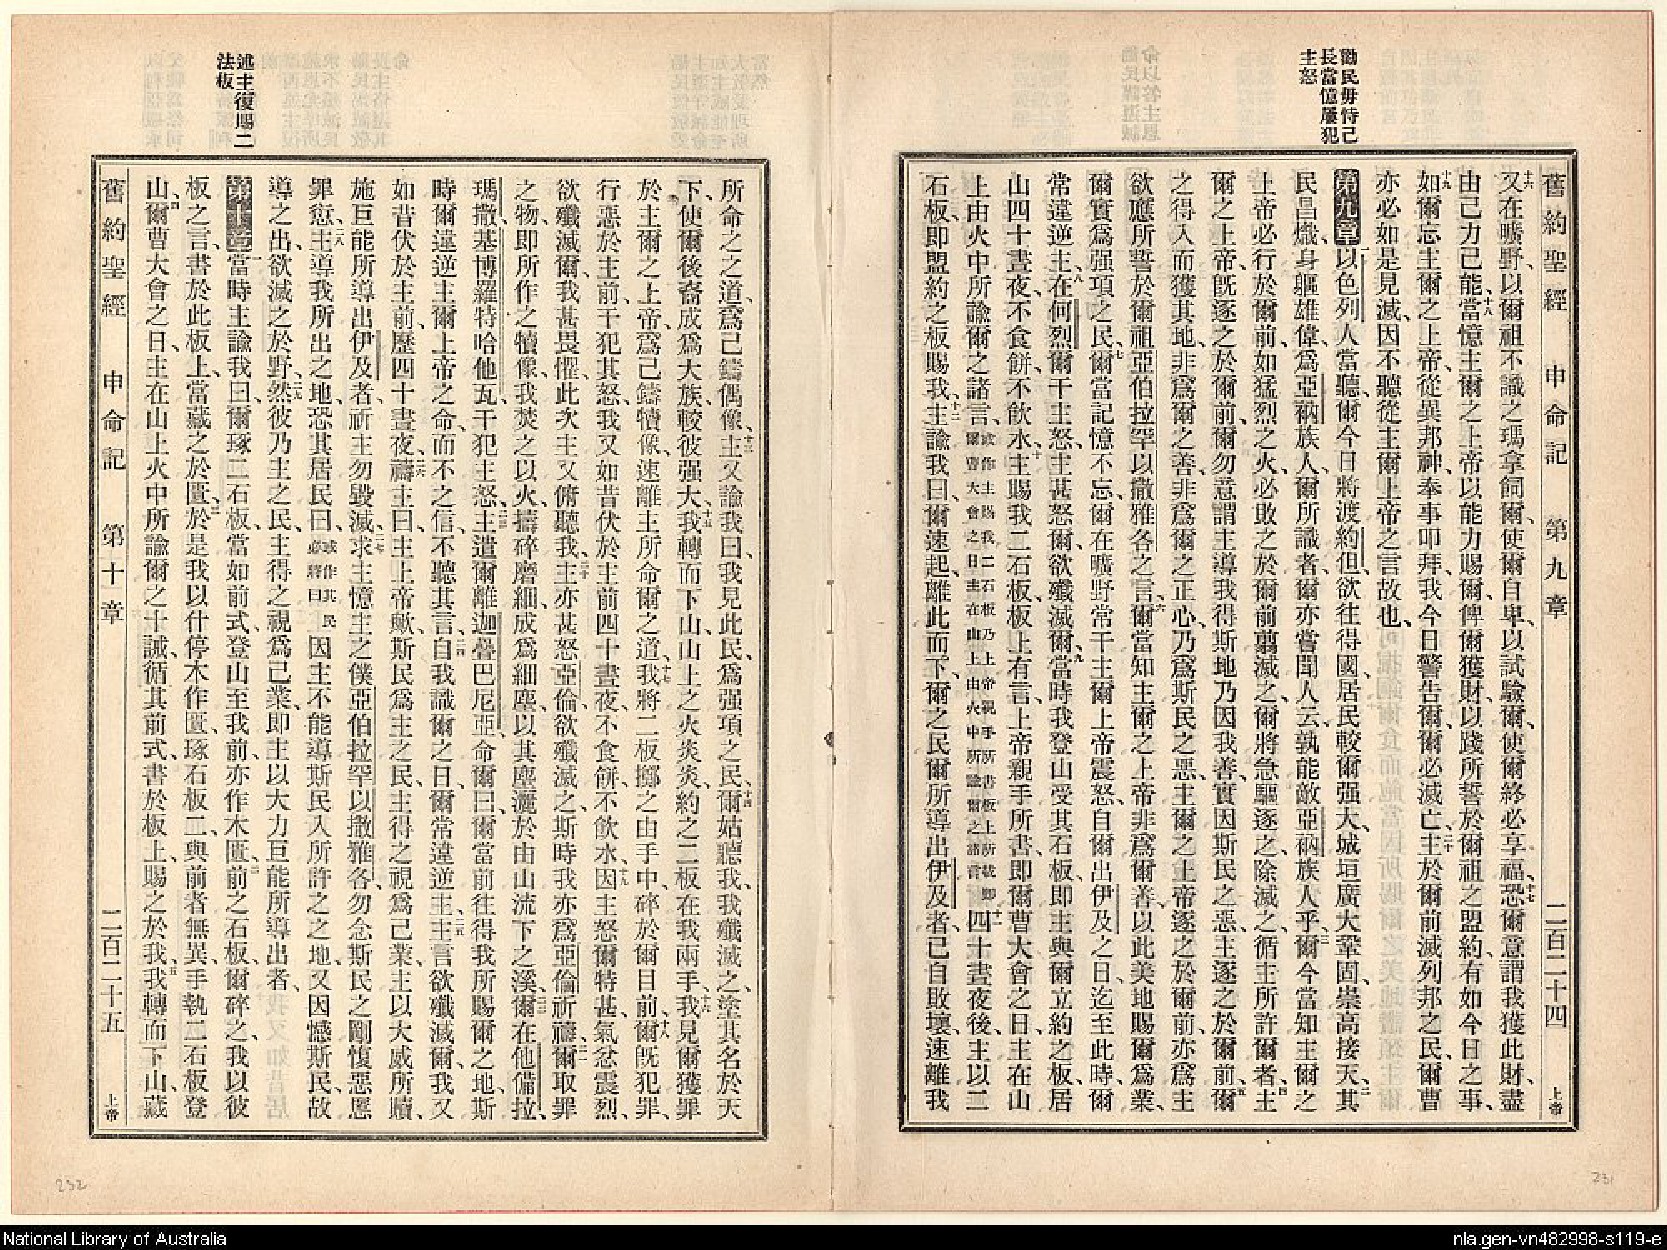 勸民毋恃己
長當憶屢犯
主怒
舊約聖經 申命記 第九章 二百二十四 上帝
又在曠野以爾祖不識之瑪拿飼爾、使爾自卑、以試驗爾、使爾終必享福、恐爾意謂我獲此財、盡
由己力己能、當憶主爾之上帝、以能力賜爾、俾爾獲財、以踐所誓於爾祖之盟約、有如今日之事、
如爾忘主爾之上帝、從異邦神、奉事叩拜、我今日警告爾、爾必滅亡、主於爾前滅列邦之民、爾曹
亦必如是見滅、因不聽從主爾上帝之言故也、
第九章 以色列人當聽、爾今日將渡約但、欲往得國、居民較爾强大、城垣廣大鞏固、崇高接天、其
民昌熾、身軀雄偉、爲亞衲族人、爾所識者、爾亦嘗聞人云、孰能敵亞衲族人乎、爾今當知主爾之
上帝必行於爾前、如猛烈之火、必敗之於爾前、翦滅之、爾將急驅逐之、除滅之、循主所許爾者、主
爾之上帝旣逐之於爾前、爾勿意謂主導我得斯地、乃因我善、實因斯民之惡、主逐之於爾前、爾
之得入而獲其地、非爲爾之善、非爲爾之正心、乃爲斯民之惡、主爾之上帝逐之於爾前、亦爲主
欲應所誓於爾祖亞伯拉罕以撒雅各之言、爾當知主爾之上帝、非爲爾善、以此美地賜爾爲業、
爾實爲强項之民、爾當記憶不忘、爾在曠野常干主爾上帝震怒、自爾出伊及之日、迄至此時、爾
常違逆主、在何烈爾干主怒、主甚怒爾、欲殲滅爾、當時我登山受其石板、卽主與爾立約之板、居
山四十晝夜、不食餅、不飮水、主賜我二石板、板上有言、上帝親手所書、卽爾曹大會之日、主在山
上由火中所諭爾之諸言、或作主賜我二石板乃上帝親手所書板上所載卽爾曹大會之日主在山上由火中所諭爾之諸言 四十晝夜後、主以二
石板、卽盟約之板賜我、主諭我曰、爾速起、離此而下、爾之民、爾所導出伊及者、已自敗壞、速離我
述主復賜二
法板
所命之之道、爲己鑄偶像、主又諭我曰、我見此民、爲强項之民、爾姑聽我、我殲滅之、塗其名於天
下、使爾後裔成爲大族、較彼强大、我轉而下山、山上之火炎炎、約之二板在我兩手、我見爾獲罪
於主爾之上帝、爲己鑄犢像、速離主所命爾之道、我將二板擲之、由手中碎於爾目前、爾旣犯罪、
行惡於主前、干犯其怒、我又如昔伏於主前四十晝夜、不食餅、不飮水、因主怒爾特甚、氣忿震烈、
欲殲滅爾、我甚畏懼、此次主又俯聽我、主亦甚怒亞倫、欲殲滅之、斯時我亦爲亞倫祈禱、爾取罪
之物、卽所作之犢像、我焚之以火、擣碎磨細、成爲細塵、以其塵灑於由山流下之溪、爾在他備拉、
瑪撒、基博羅特哈他瓦、干犯主怒、主遣爾離迦疊巴尼亞、命爾曰、爾當前往得我所賜爾之地、斯
時爾違逆主爾上帝之命、而不之信、不聽其言、自我識爾之日、爾常違逆主、主言欲殲滅爾、我又
如昔伏於主前、歷四十晝夜、禱主曰、主上帝歟、斯民爲主之民、主得之視爲己業、主以大威所贖、
施巨能所導出伊及者、祈主勿毀滅、求主憶主之僕亞伯拉罕以撒雅各、勿念斯民之剛愎惡慝
罪愆、主導我所出之地、恐其居民曰、或作其民必將曰 因主不能導斯民入所許之之地、又因憾斯民、故
導之出、欲滅之於野、然彼乃主之民、主得之視爲己業、卽主以大力巨能所導出者、
第十章 當時主諭我曰、爾琢二石板、當如前式、登山至我前、亦作木匱、前之石板爾碎之、我以彼
板之言、書於此板上、當藏之於匱、於是我以什停木作匱、琢石板二、與前者無異、手執二石板登
山、爾曹大會之日、主在山上火中所諭爾之十誡、循其前式書於板上、賜之於我、我轉而下山、藏
舊約聖經 申命記 第十章 二百二十五 上帝
232
231
National Library of Australia
nla.gen-vn482998-s119-e